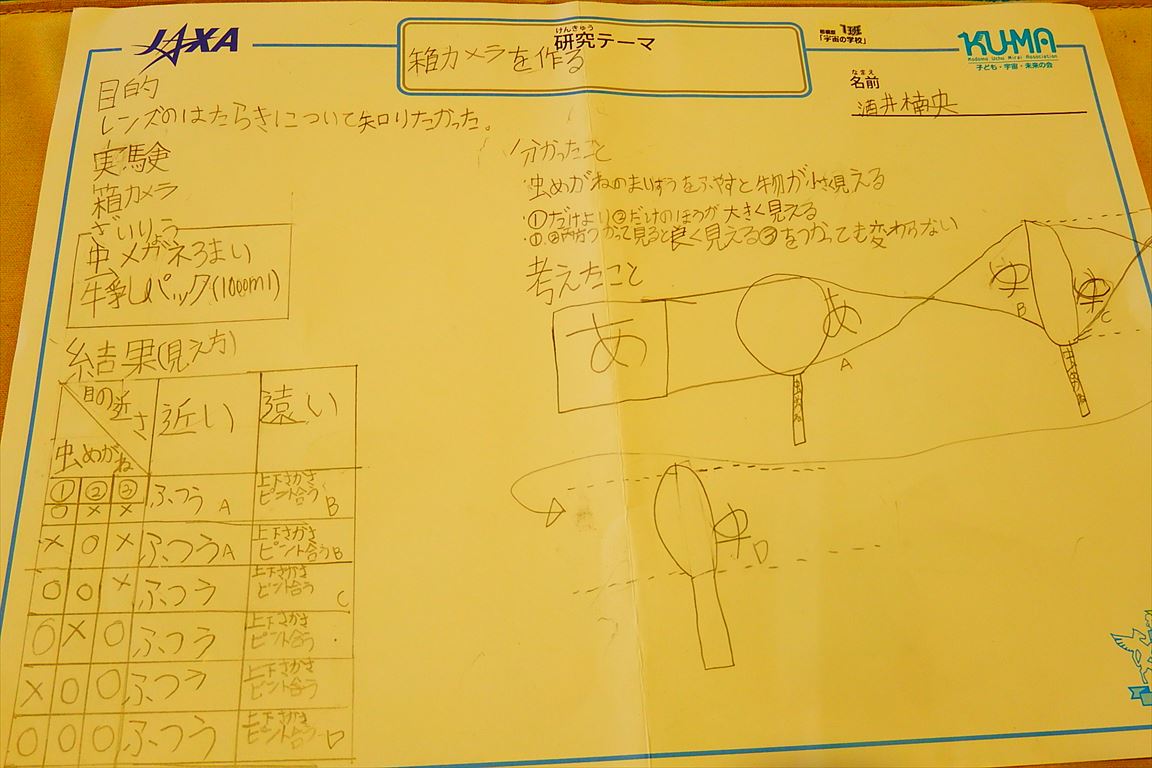 JAXA
けんきゅう
研究テーマ
箱カメラを作る
相模原 1班
「宇宙の学校」
KU-MA
Kodomo Uchu Mirai Association
子ども・宇宙・未来の会
なまえ
名前
酒井楠央
目的
レンズのはたらきについて知りたかった。
実験
箱カメラ
ざいりょう
虫メガネ3まい
牛乳パック(1000ml)
結果(見え方)
目の近さ
虫めがね
近い
遠い
① ② ③
○ × × ふつう A 上下さかさ ピント合う B
× ○ × ふつう A 上下さかさ ピント合う B
○ ○ × ふつう 上下さかさ ピント合う C
○ × ○ ふつう 上下さかさ ピント合う
× ○ ○ ふつう 上下さかさ ピント合う
○ ○ ○ ふつう 上下さかさ ピント合う D
分かったこと
虫めがねのまいすうをふやすと物が小さく見える
・①だけより②だけのほうが大きく見える
・①、②両方つかって見ると良く見える③をつかっても変わらない
考えたこと
あ
あ
A
B
C
D